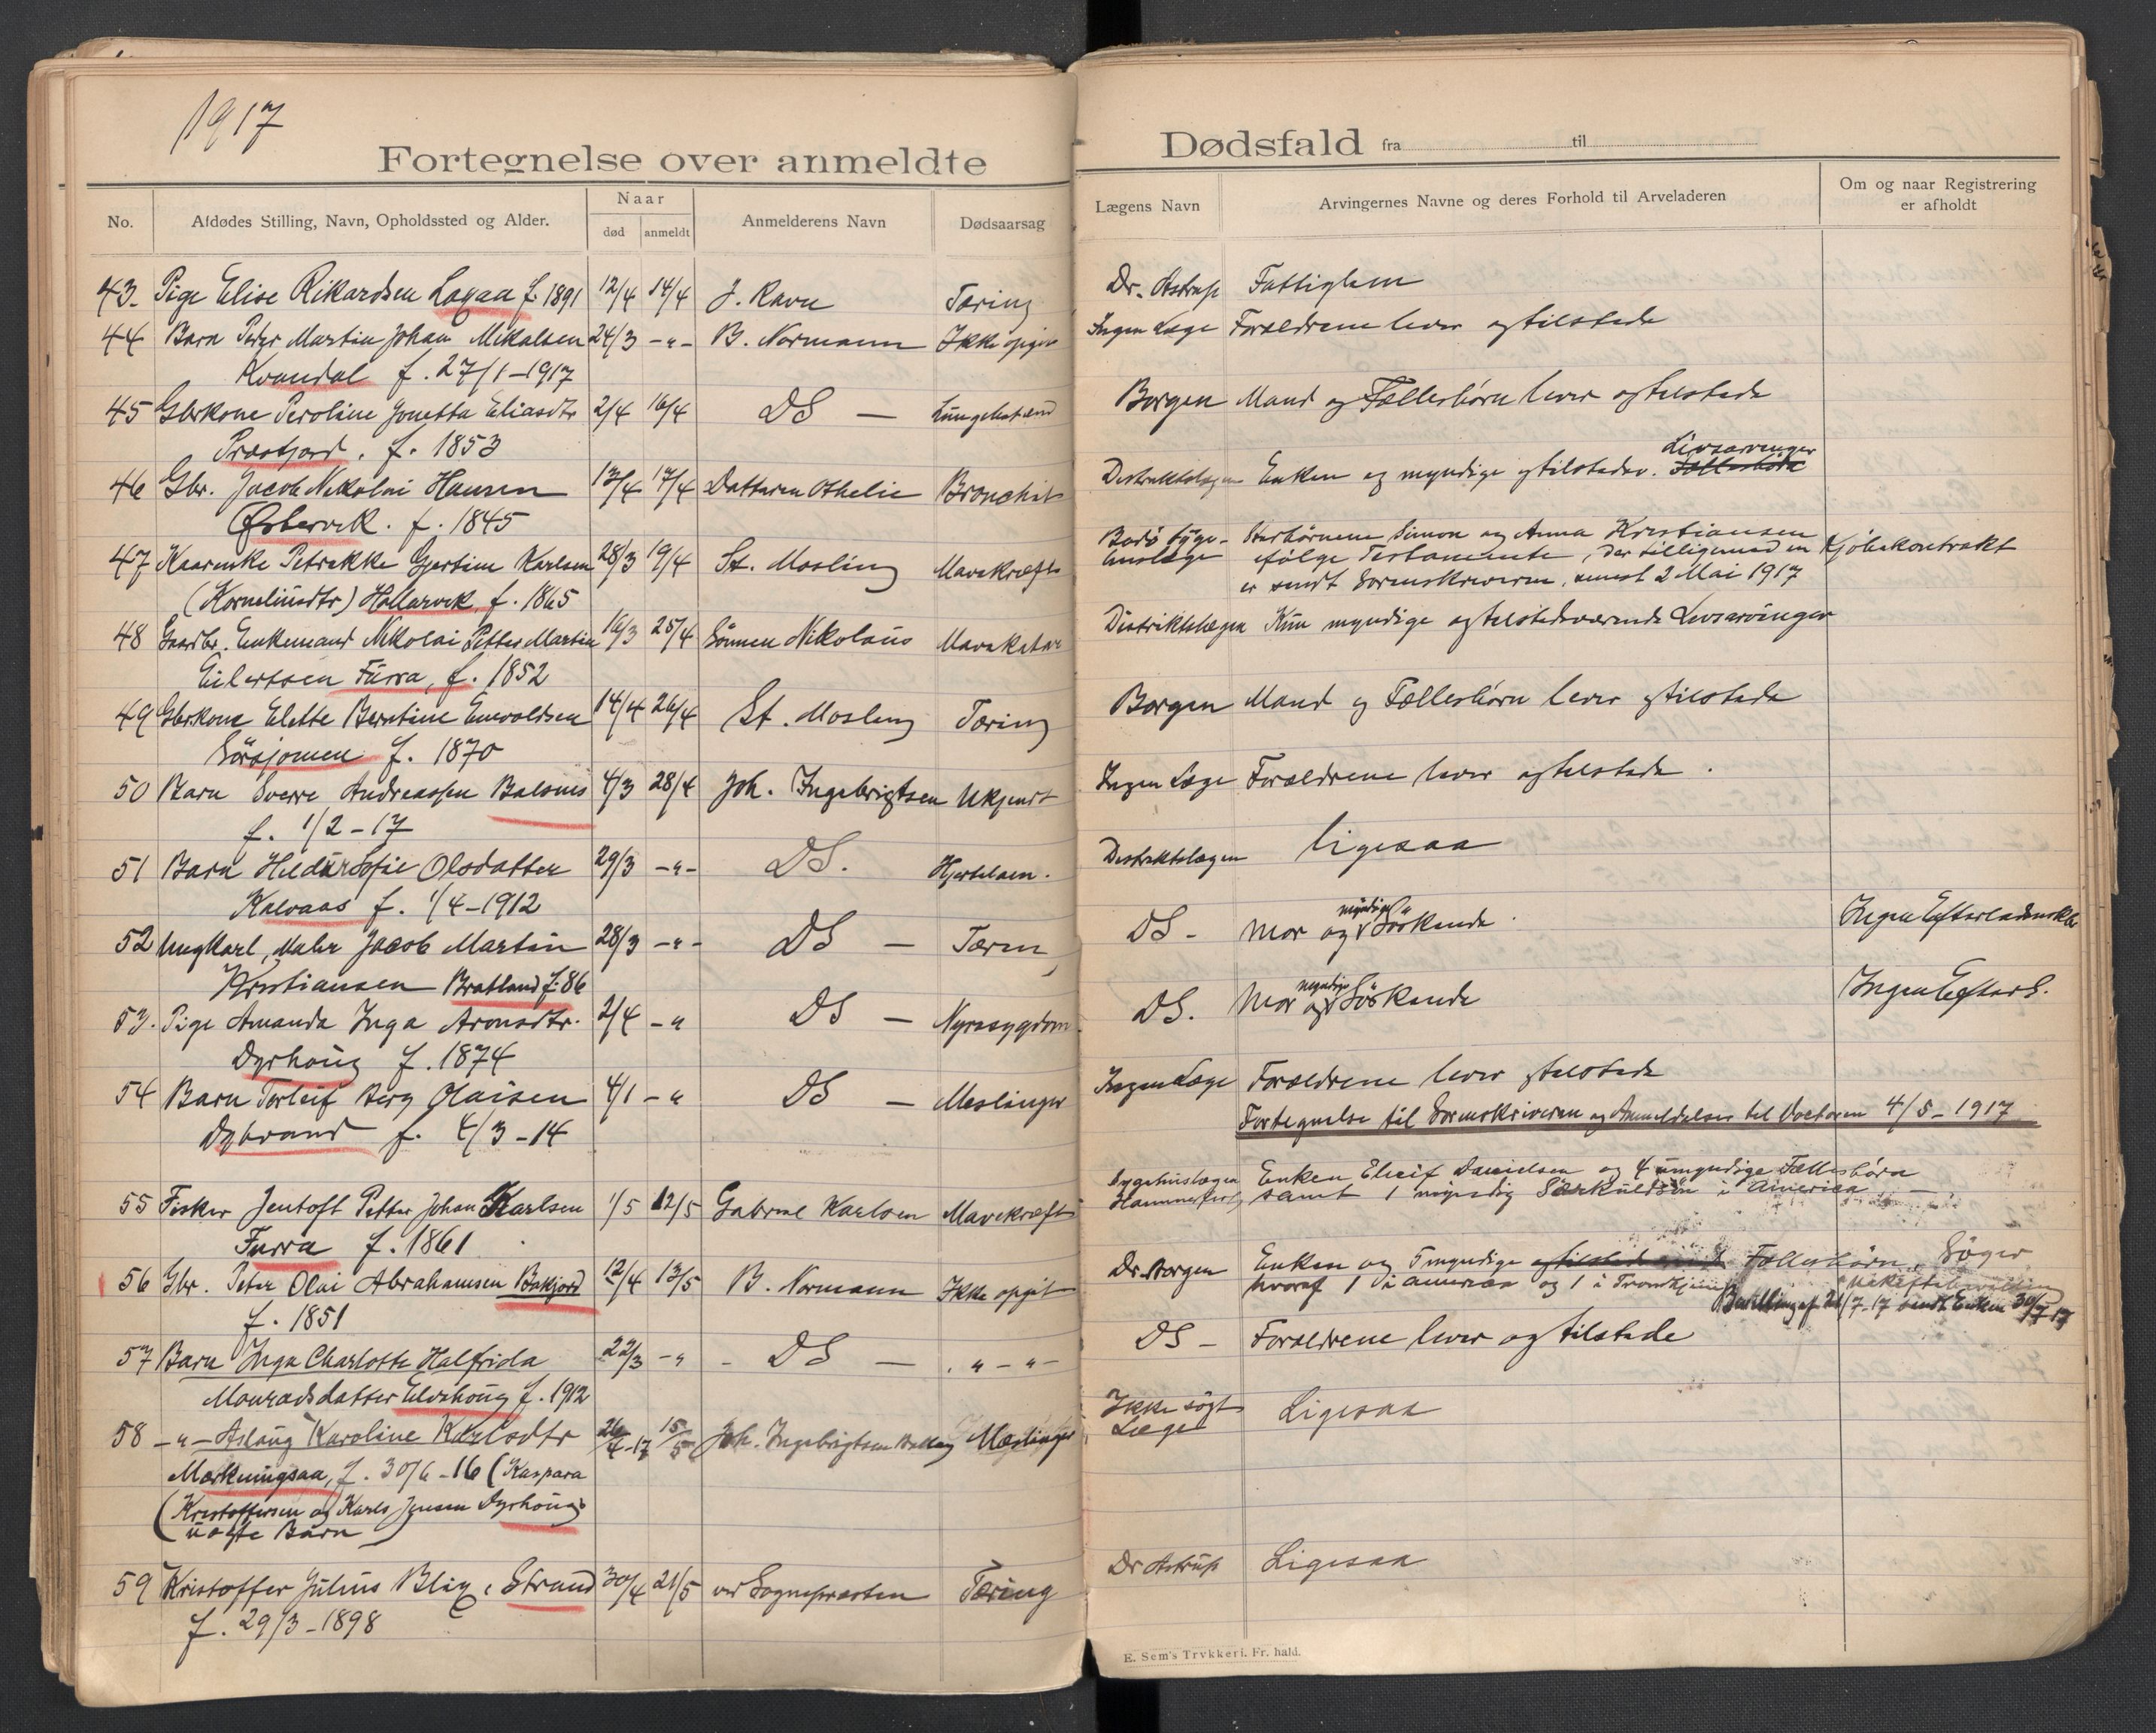 1917
Fortegnelse over anmeldte
No.
Afdødes Stilling, Navn, Opholdssted og Alder.
Naar
død
anmeldt
Anmelderens Navn
Dødsaarsag
43. Pige Elise Rikardsen Laxaa f. 1891 12/4 14/4 J. Ravn Tæring
44 Barn Peder Martin Johan Mikalsen 24/3 -„- B. Normann Ikke opgiv
Kvandal f. 27/1-1917
45 Gbrkone Peroline Jonetta Eliasdtr 2/4 16/4 DS — Lungebetænd
Præstjord. f. 1853
46 Gbr. Jacob Nikolai Hansen 13/4 17/4 Datteren Othelie Bronchit
Østervik. f. 1845
47 Petrikke Gjertine Karlsen 28/3 19/4 St. Mosling Mavekræft
(Korneliusdtr) Hallarvik f. 1865
48 Gaardbr. Enkemand Nikolai Petter Martin 16/3 25/4 Sönnen Nikolaus Mavekatar
Eilertsen Furra, f. 1852
49 Gbrkone Elette Berntine Enevoldsen 14/4 26/4 St. Mosling Tæring
Sörsjomen f. 1870
50 Barn Sverre Andreassen Balsnes 4/3 28/4 Joh. Ingebrigtsen Ukjendt
f. 1/2-17
51 Barn Olsdatter 29/3 -„- DS.
Kalvaas f. 1/4-1912
52 Ungkarl, Maler Jacob Martin 28/3 -„- DS — Tæring
Kristiansen Bratland f. 86
53. Pige Amanda Inga Aronsdtr. 2/4 -„ DS — Nyresygdom
Dyrhoug f. 1874
54 Barn Torleif Berg Olaisen 4/1 -„ DS — Meslinger
Dybvand f. 4/3-14
55 Fisker Jentoft Petter Johan Karlsen 1/5 12/5 Gabriel Karlsen Mavekræft
Furra f. 1861
56 Gbr. Peter Olai Abrahamsen Bakjord 12/4 13/5 B. Normann Ikke opgit
f. 1851
57 Barn Inga Charlotte Halfrida 22/3 -„ - DS — „-„-
Monradsdatter Elvehoug f. 1912
58 -„- Aslaug Karoline Karlsdtr 26/4-17 15/5 Joh. Ingebrigtsen Meslinger
f. 30/6-16 (Kaspara
(Kristoffersen og Karls Jensen Dyrhougs
uægte Barn)
59 Kristoffer Julius Blix, Strand 30/4 21/5 ved Sognepræsten Tæring
f. 29/3-1898
Dødsfald fra til
Lægens Navn
Arvingernes Navne og deres Forhold til Arveladeren
Om og naar Registrering
er afholdt
Dr. Astrup Fattiglem
Ingen Læge Forældrene lever og tilstede
Borgen Mand og Fællesbörn lever og tilstede
Livsarvinger
Distriktslægen Enken og myndige og tilstedev. Fællesbörn
Bodø Syge- Simon og Anna Kristiansen
ifölge Testamente, der tilligemed en Kjöbekontrakt
er sendt Sorenskriveren, senest 2 Mai 1917
Distriktslægen Kun myndige og tilstedeværende Livsarvinger
Borgen Mand og Fællesbörn lever og tilstede
Ingen Læge Forældrene lever og tilstede.
Distriktslægen Ligesaa
myndige
DS - Mor og Söskende. Ingen
myndige
DS. Mor og Söskende Ingen Efterl.
Ingen Læge Forældrene lever og tilstede
Fortegnelse til Sorenskriveren og Anmeldelser til Doctoren 4/5-1917
Sygehuslægen Enken Danielsen og 4 umyndige Fællesbörn
Hammerfest, samt 1 myndig Særkuldsön i America —
Dr. Borgen Enken og 5 myndige Fællesbörn, Söger
hvoraf 1 i America og 1 i Trondhjem
Bevilling af 21/7-17 sendt Enken 30/7 17
DS - Forældrene lever og tilstede
Ikke sögt Ligesaa
Læge
Dr Astrup Ligesaa
E. Sem's Trykkeri. Fr. hald.